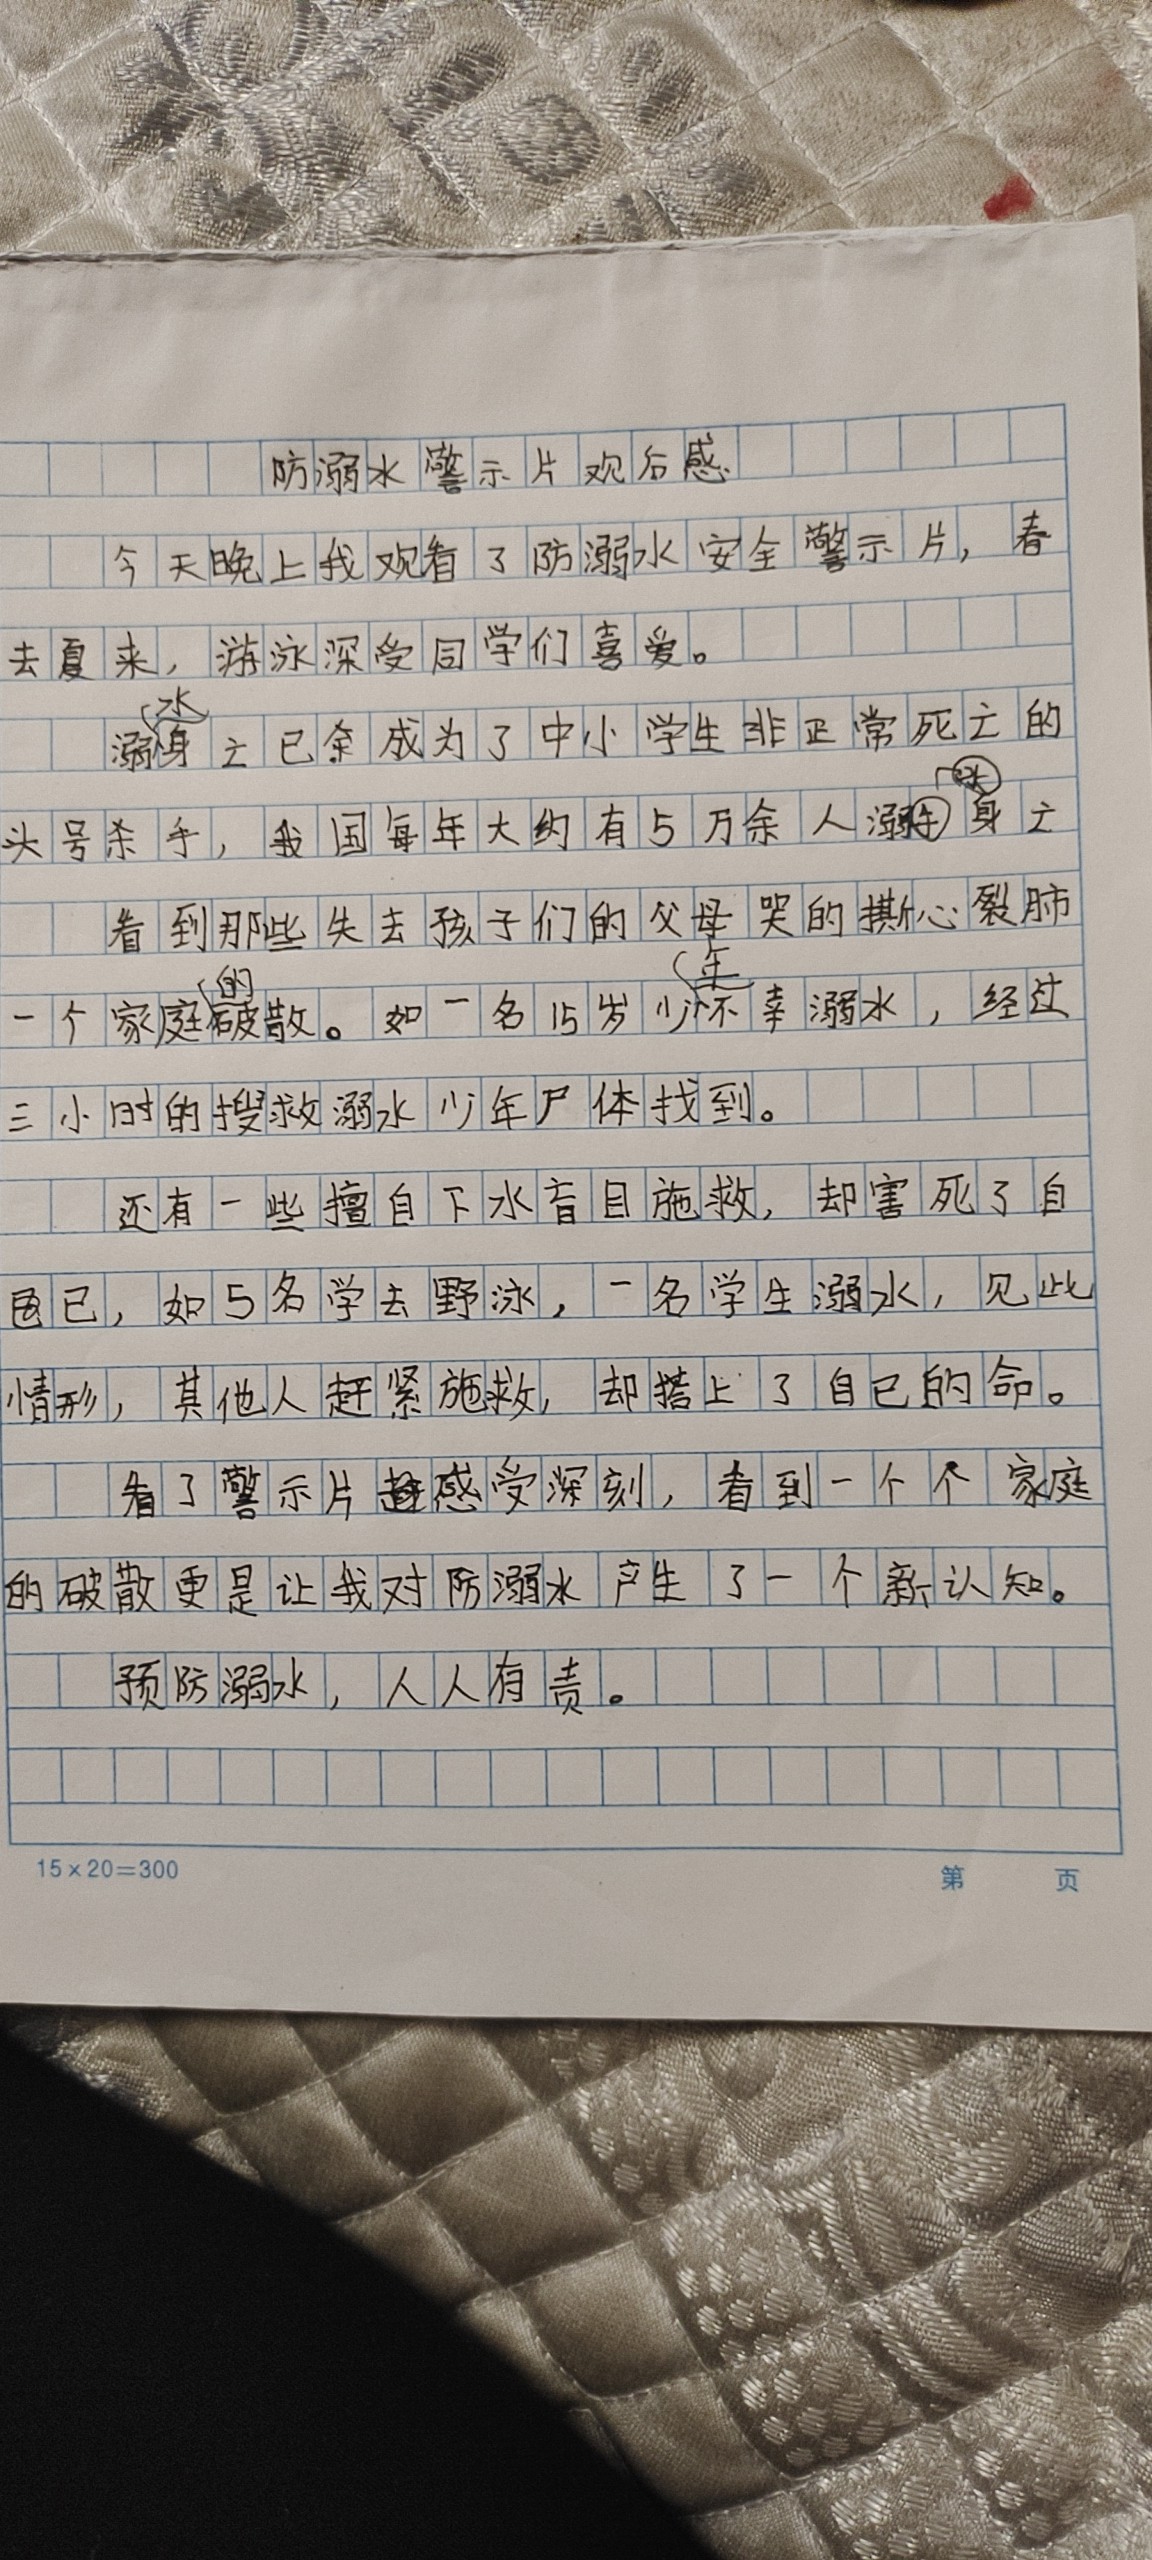 防溺水警示片观后感
今天晚上我观看了防溺水安全警示片，春
去夏来，游泳深受同学们喜爱。
溺水身亡已余成为了中小学生非正常死亡的
头号杀手，我国每年大约有5万余人溺水身亡
看到那些失去孩子们的父母哭的撕心裂肺
一个家庭的破散。如一名15岁少年不幸溺水，经过
三小时的搜救溺水少年尸体找到。
还有一些擅自下水盲目施救，却害死了自
己，如5名学去野泳，一名学生溺水，见此
情形，其他人赶紧施救，却搭上了自己的命。
看了警示片感受深刻，看到一个个家庭
的破散更是让我对防溺水产生了一个新认知。
预防溺水，人人有责。
15×20=300
第 页